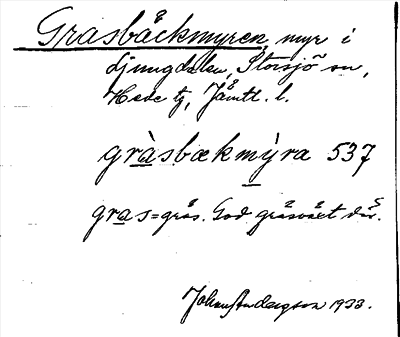 Grasbäckmyren, myr i
Ljungdalen, Storsjö sn,
Hede tg, Jämtl. l.
gràsbækmỳra 537
gras = gräs. God gräsväxt där.
Johan Anderzson 1933.